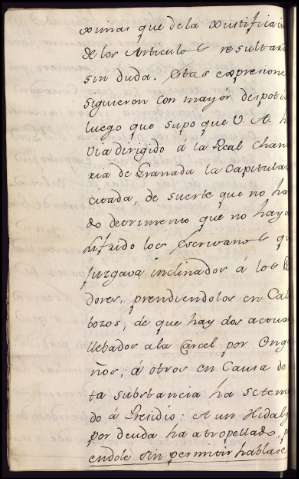 ximas que dela Justifica
de los Articulos resultara
sin duda. Estas expresiones
siguieron con mayor despot
luego que supo que V. A. h
via dirigido á la Real Chan
ria de Granada la Capitula
citada, de suerte que no ha
do detrimento que no hay
sufrido los Escrivanos q
juzgava inclinados á los
dores, prendiendolos en Cala
bozos, de que hay dos
llebados ala Carcel por Eng
nos, á otros en Causa de
ta substancia ha
do á Presidio: A un Hidal
por deuda ha atropellado
endole sin permitir hablase